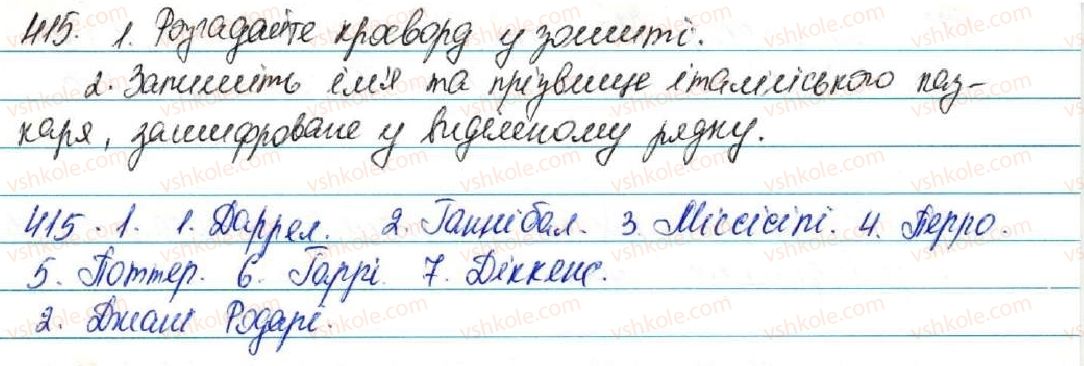 415. 1. Розгадайте кросворд у зошиті.
2. Запишіть ім'я та прізвище італійського каз-
каря, зашифроване у виділеному рядку.
415. 1. 1. Даррел. 2. Ганнібал. 3. Міссісіпі. 4. Перро.
5. Поттер. 6. Гаррі. 7. Діккенс.
2. Джані Родарі.